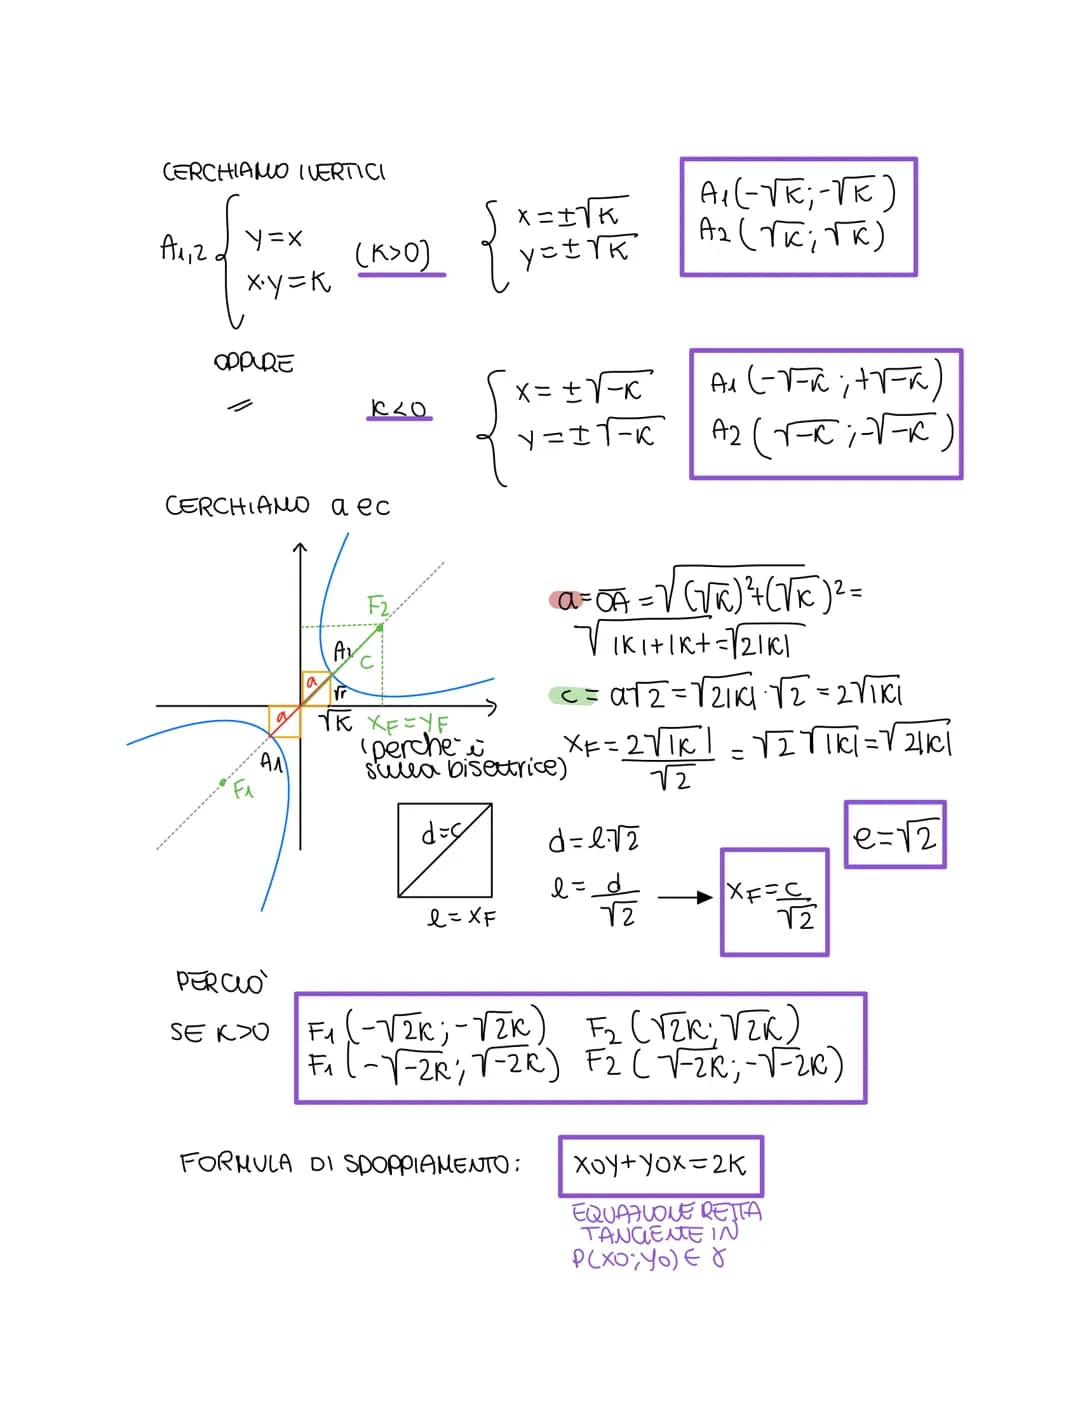 CERCHIAMO I VERTICI
A1,2 { y=x
x·y=K
(K>0)
{ x=±√K
y=±√K
A1(-√K;-√K)
A2(√K;√K)
OPPURE
=
K<0
{ x=±√-K
y=±√-K
A1(-√-K;+√-K)
A2(√-K;-√-K)
CERCHIAMO a e c
F2
A2
c
a
√K
a
√K
XF=YF
(perchè è
sulla bisettrice)
A1
F1
a=OA=√(√K)²+(√K)²=
√|K|+|K|=√2|K|
c=a√2=√2|K|·√2=2√|K|
XF=2√|K|/√2=√2√|K|=√2|K|
d=c
l=XF
d=l·√2
l=d/√2 → XF=c/√2
e=√2
PERCIO'
SE K>0
F1(-√2K;-√2K) F2(√2K;√2K)
F1(-√-2K;√-2K) F2(√-2K;-√-2K)
FORMULA DI SDOPPIAMENTO: x0y+y0x=2K
EQUAZIONE RETTA
TANGENTE IN
P(x0;y0)∈γ